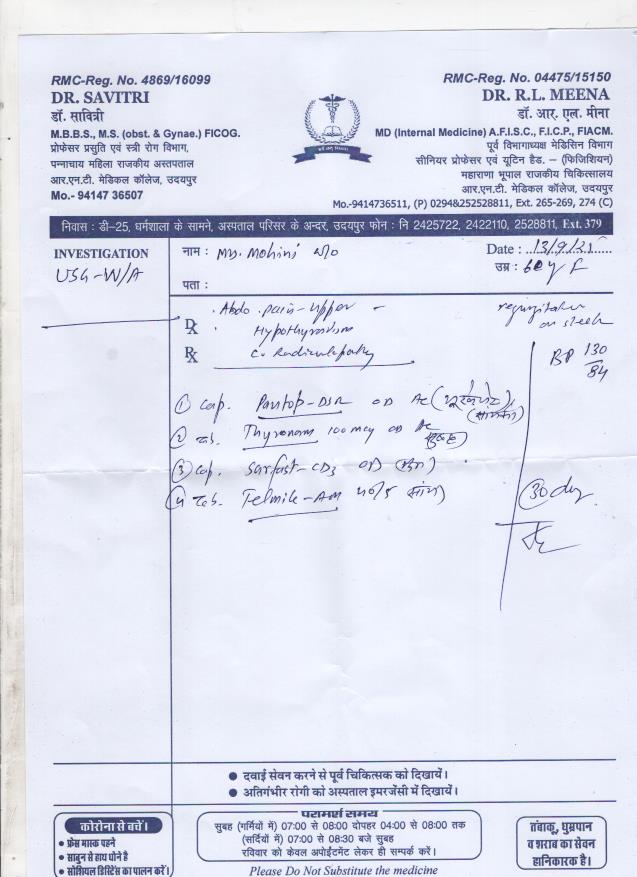 RMC-Reg. No. 4869/16099
DR. SAVITRI
डॉ. सावित्री
M.B.B.S., M.S. (obst. & Gynae.) FICOG.
प्रोफेसर प्रसुति एवं स्त्री रोग विभाग,
पन्नाचाय महिला राजकीय अस्तपताल
आर.एन.टी. मेडिकल कॉलेज, उदयपुर
Mo.- 94147 36507
RMC-Reg. No. 04475/15150
DR. R.L. MEENA
डॉ. आर. एल. मीना
MD (Internal Medicine) A.F.I.S.C., F.I.C.P., FIACM.
पूर्व विभागाध्यक्ष मेडिसिन विभाग
सीनियर प्रोफेसर एवं यूटिन हैड. – (फिजिशियन)
महाराणा भूपाल राजकीय चिकित्सालय
आर.एन.टी. मेडिकल कॉलेज, उदयपुर
Mo.-9414736511, (P) 0294&252528811, Ext. 265-269, 274 (C)
निवास : डी-25, धर्मशाला के सामने, अस्पताल परिसर के अन्दर, उदयपुर फोन : नि 2425722, 2422110, 2528811, Ext. 379
INVESTIGATION
USG-W/A
नाम : Mrs. Mohini w/o
Date : 13/9/25
उम्र : 60 y F
पता :
Abdo. pain-upper
Dx Hypothyroidism
Rx C. Radiculopathy
regurgitation
BP 130
84
① cap. Pantop-DSR OD AC
② tab. Thyronorm 100 mcg OD AC
③ cap. -CD3 OD
④ tab. -AM 40/5
30 day
● दवाई सेवन करने से पूर्व चिकित्सक को दिखायें।
● अतिगंभीर रोगी को अस्पताल इमरजेंसी में दिखायें।
कोरोना से बचें।
● फ्रेस मास्क पहने
● साबुन से हाथ धोने है
● सोशियल डिस्टिेंस का पालन करें।
परामर्श समय
सुबह (गर्मियों में) 07:00 से 08:00 दोपहर 04:00 से 08:00 तक
(सर्दियों में) 07:00 से 08:30 बजे सुबह
रविवार को केवल अपोईंटमेंट लेकर ही सम्पर्क करें।
Please Do Not Substitute the medicine
तंबाकू, धुम्रपान
व शराब का सेवन
हानिकारक है।